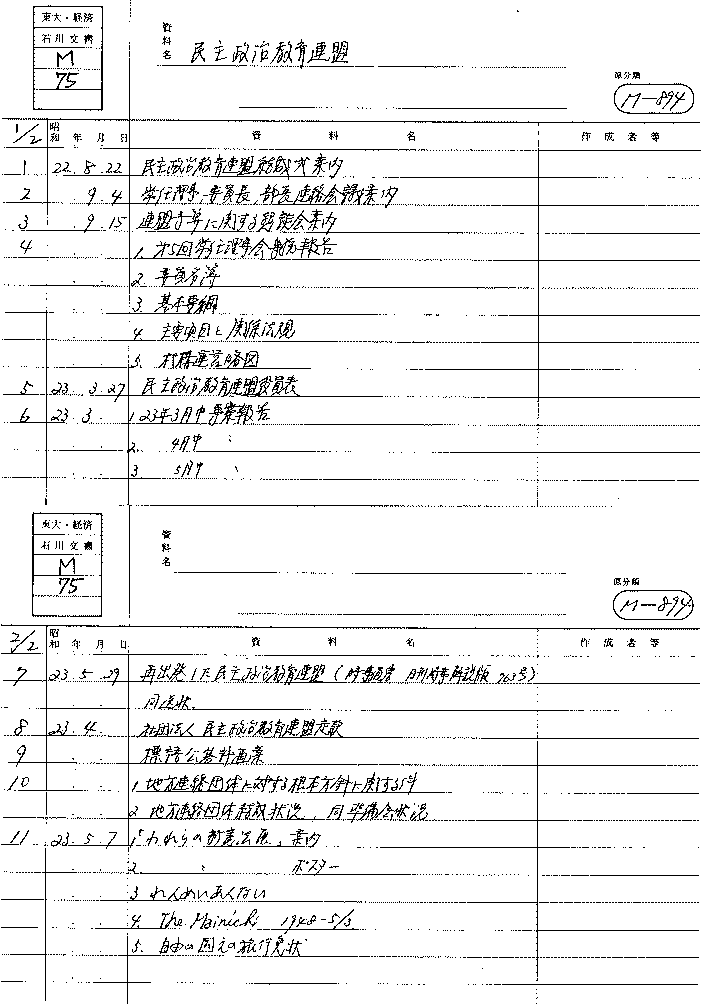 東大・経済
石川文書
M
75
資料名 民主政治教育連盟
原分類
M-894
1/2 昭和 年 月 日 資料名 作成者等
1 22.8.22 民主政治教育連盟結成式案内
2 9.4 常任理事、委員長、部長連絡会議案内
3 9.15 連盟予算に関する懇談会案内
4 1. 第5回常任理事会事務報告
2. 委員名簿
3. 基本要綱
4. 主要項目と関係法規
5. 機構運営略図
5 23.3.27 民主政治教育連盟役員表
6 23.3. 1. 23年3月中事業報告
2. 4月中 〃
3. 5月中 〃
東大・経済
石川文書
M
75
資料名
原分類
M-894
2/2 昭和 年 月 日 資料名 作成者等
7 23.5.29 再出発した民主政治教育連盟 ( 月刊時事解説版 763号)
同送状
8 23.4. 社団法人民主政治教育連盟定款
9 標語公募計画案
10 1. 地方連絡団体に対する根本方針に関する件
2. 地方連絡団体結成状況、同準備会状況
11 23.5.7 1.「われらの 」案内
2. 〃 ポスター
3. れんめいあんない
4. The Mainichi 1948-5/3.
5. 自由の国えの旅行免状